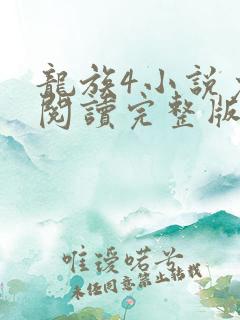 龍族4小說
閱讀完整版
唯谖喏兮
未经同意禁止转载